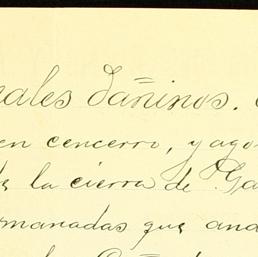 ales Dañinos.
en cencerro, y ago
la cierra de Ga
manadas que and